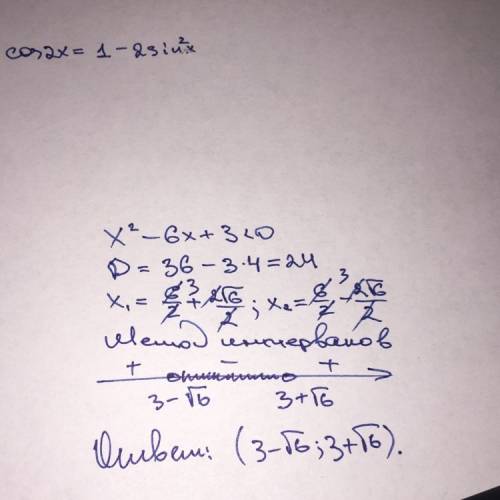 cos2x = 1 - 2sin²x
x² - 6x + 3 < 0
D = 36 - 3·4 = 24
x₁ = 6/2 3 + 2√6/2 ; x₂ = 6/2 3 - 2√6/2
Метод интервалов
+ - +
3-√6 3+√6
Ответ: (3-√6; 3+√6).